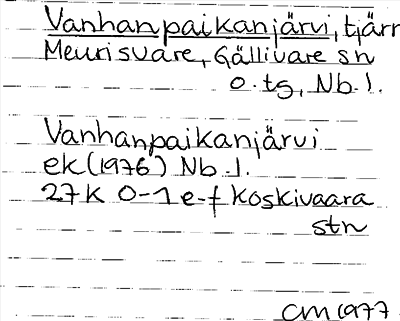 Vanhanpaikanjärvi, tjärn
Meurisvare, Gällivare sn
o. tg, Nb. l.
Vanhanpaikanjärvi
ek (1976) Nb. l.
27K 0-1 e-f Koskivaara
stn
CM 1977